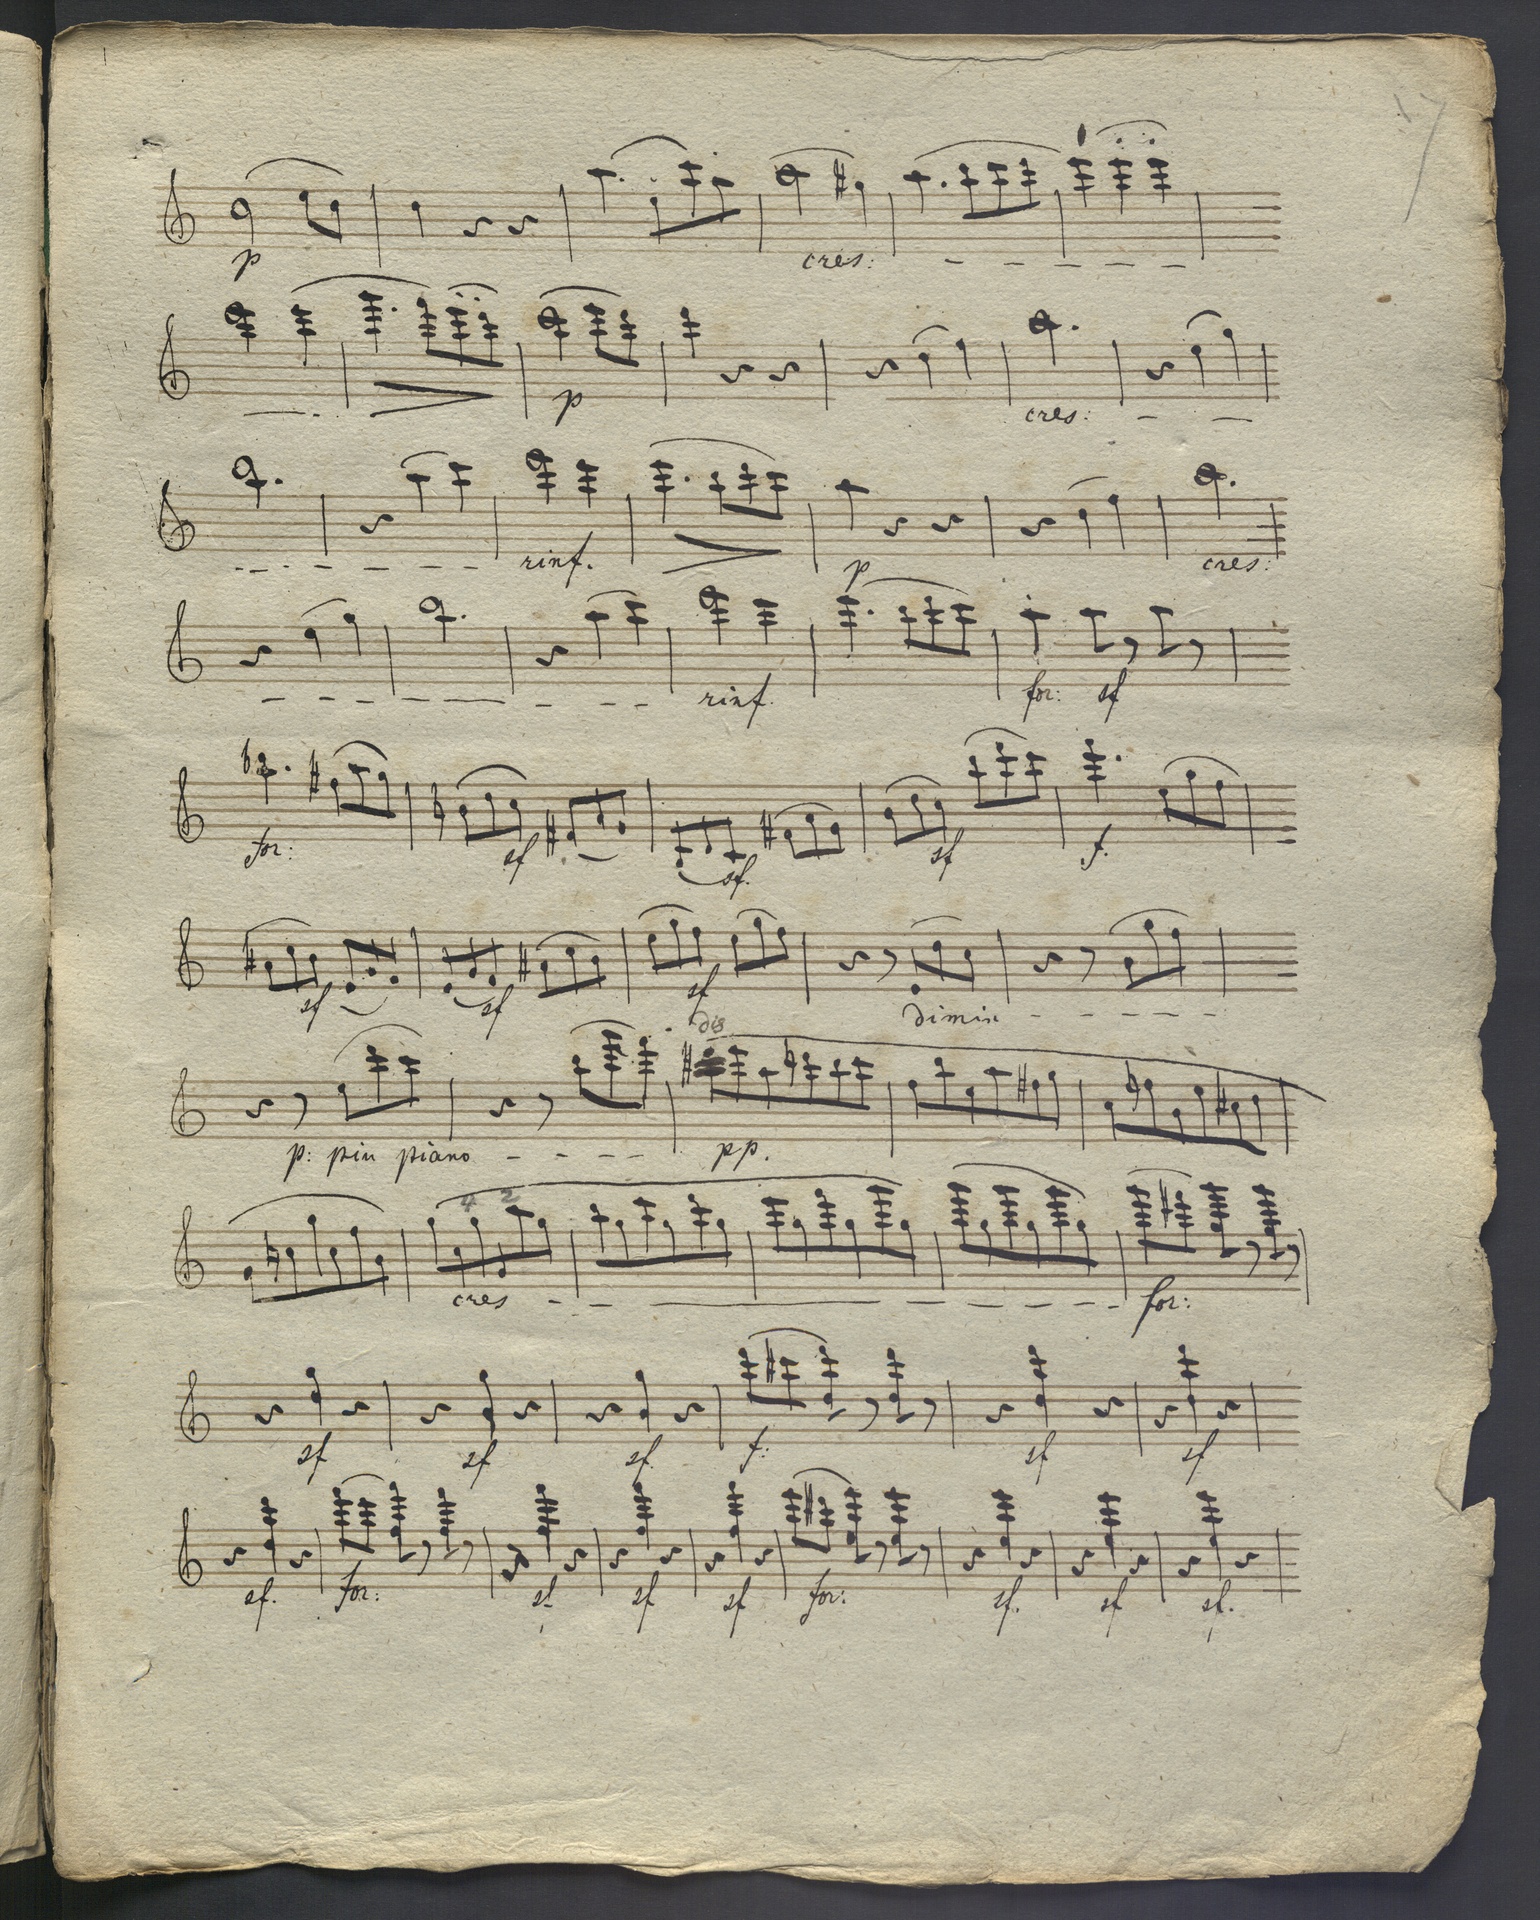 17
p cres:
p cres:
rinf. p cres:
rinf. for: sf
for: sf sf. sf f.
sf sf sf dimin
dis
p: piu piano pp.
4 2
cres for:
sf sf sf. f: sf sf
sf. for: sf sf sf for: sf. sf sf.